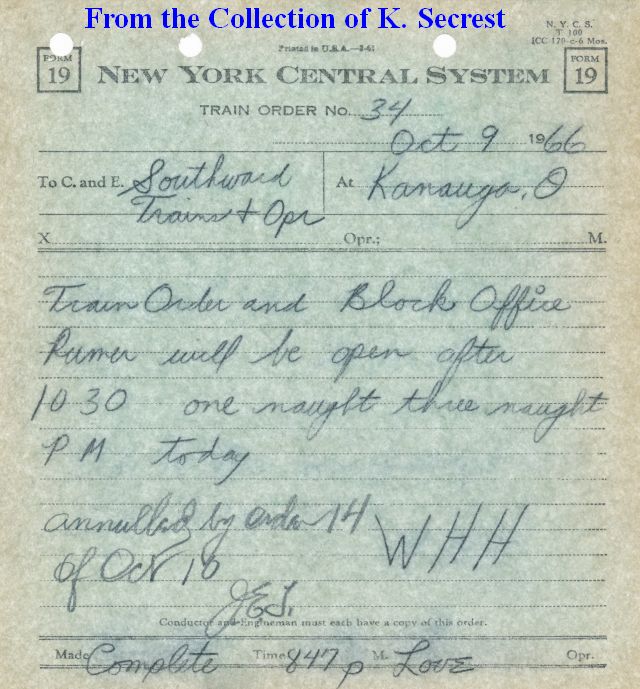 From the Collection of K. Secrest
N. Y. C. S.
T 100
ICC 170-c-6 Mos.
Printed in U.S.A.—3-61
FORM 19
NEW YORK CENTRAL SYSTEM
FORM 19
TRAIN ORDER No. 34
Oct 9 1966
To C. and E. Southward At Kanauga, O
Trains + Opr
X Opr.; M.
Train Order and Block Office
Rumer will be open after
10 30 one naught three naught
PM today
annulled by order 14
of Oct 10
WHH
JEL
Conductor and Engineman must each have a copy of this order.
Made Complete Time 847 p M. Love Opr.